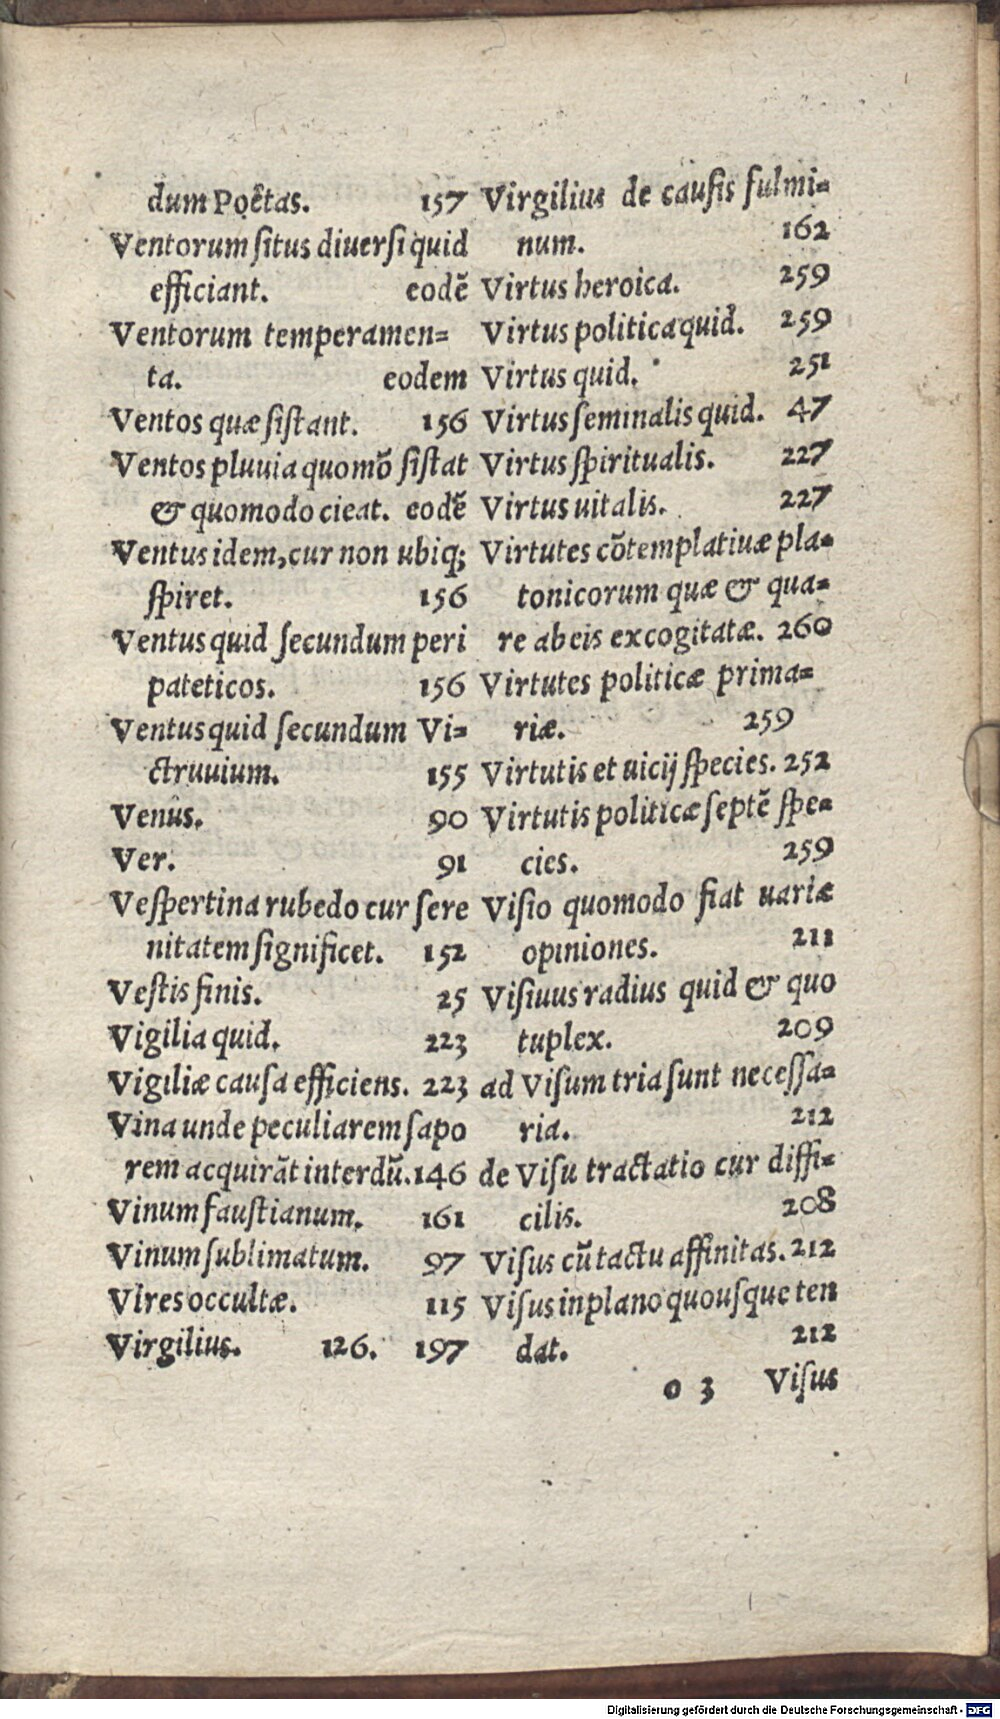 dum Poëtas. 157
Ventorum situs diuersi quid
efficiant. eodē
Ventorum temperamen=
ta. eodem
Ventos quæ sistant. 156
Ventos pluuia quomō sistat
& quomodo cieat. eodē
Ventus idem, cur non ubiq;
spiret. 156
Ventus quid secundum peri
pateticos. 156
Ventus quid secundum Vi=
ctruuium. 155
Venus. 90
Ver. 91
Vespertina rubedo cur sere
nitatem significet. 152
Vestis finis. 25
Vigilia quid. 223
Vigiliæ causa efficiens. 223
Vina unde peculiarem sapo
rem acquirāt interdū. 146
Vinum faustianum. 161
Vinum sublimatum. 97
Vires occultæ. 115
Virgilius. 126. 197
Virgilius de causis fulmi=
num. 162
Virtus heroica. 259
Virtus politica quid. 259
Virtus quid. 251
Virtus seminalis quid. 47
Virtus spiritualis. 227
Virtus uitalis. 227
Virtutes cōtemplatiuæ pla=
tonicorum quæ & qua=
re ab eis excogitatæ. 260
Virtutes politicæ prima=
riæ. 259
Virtutis et uicij species. 252
Virtutis politicæ septē spe=
cies. 259
Visio quomodo fiat uariæ
opiniones. 211
Visiuus radius quid & quo
tuplex. 209
ad Visum tria sunt necessa=
ria. 212
de Visu tractatio cur diffi=
cilis. 208
Visus cū tactu affinitas. 212
Visus in plano quousque ten
dat. 212
o 3 Visus
Digitalisierung gefördert durch die Deutsche Forschungsgemeinschaft - DFG